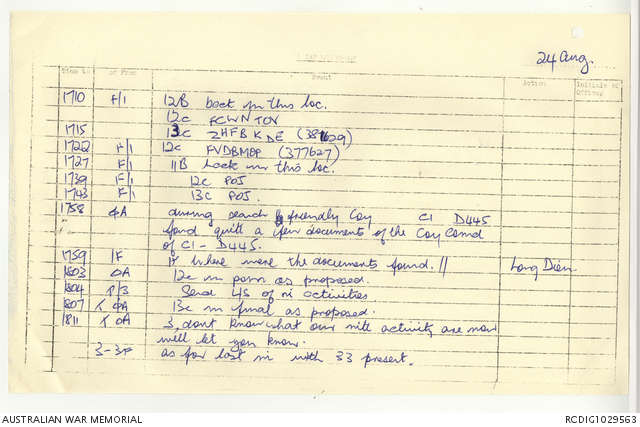 24 Aug.
Time In or From Event Action Initials of Officer
1710 F/1 12B back in this loc.
12c FCWNTOV
1715 13c ZHFBKDE (381629)
1722 F/1 12c FVDBMPP (377627)
1727 F/1 11B back in this loc.
1739 F/1 12c POS
1743 F/1 13c POS.
1758 0A during search by friendly Coy C1 D445
found quite a few documents of the Coy Comd
of C1 - D445.
1759 1F If where were the documents found. // Long Dien
1803 0A 12c in posn as proposed.
1804 T/3 Send 4S of ni activities
1807 T 0A 13c in final as proposed.
1811 T 0A 3, dont know what our nite activity are now
will let you know.
3-3F as for last in with 33 present.
AUSTRALIAN WAR MEMORIAL
RCDIG1029563